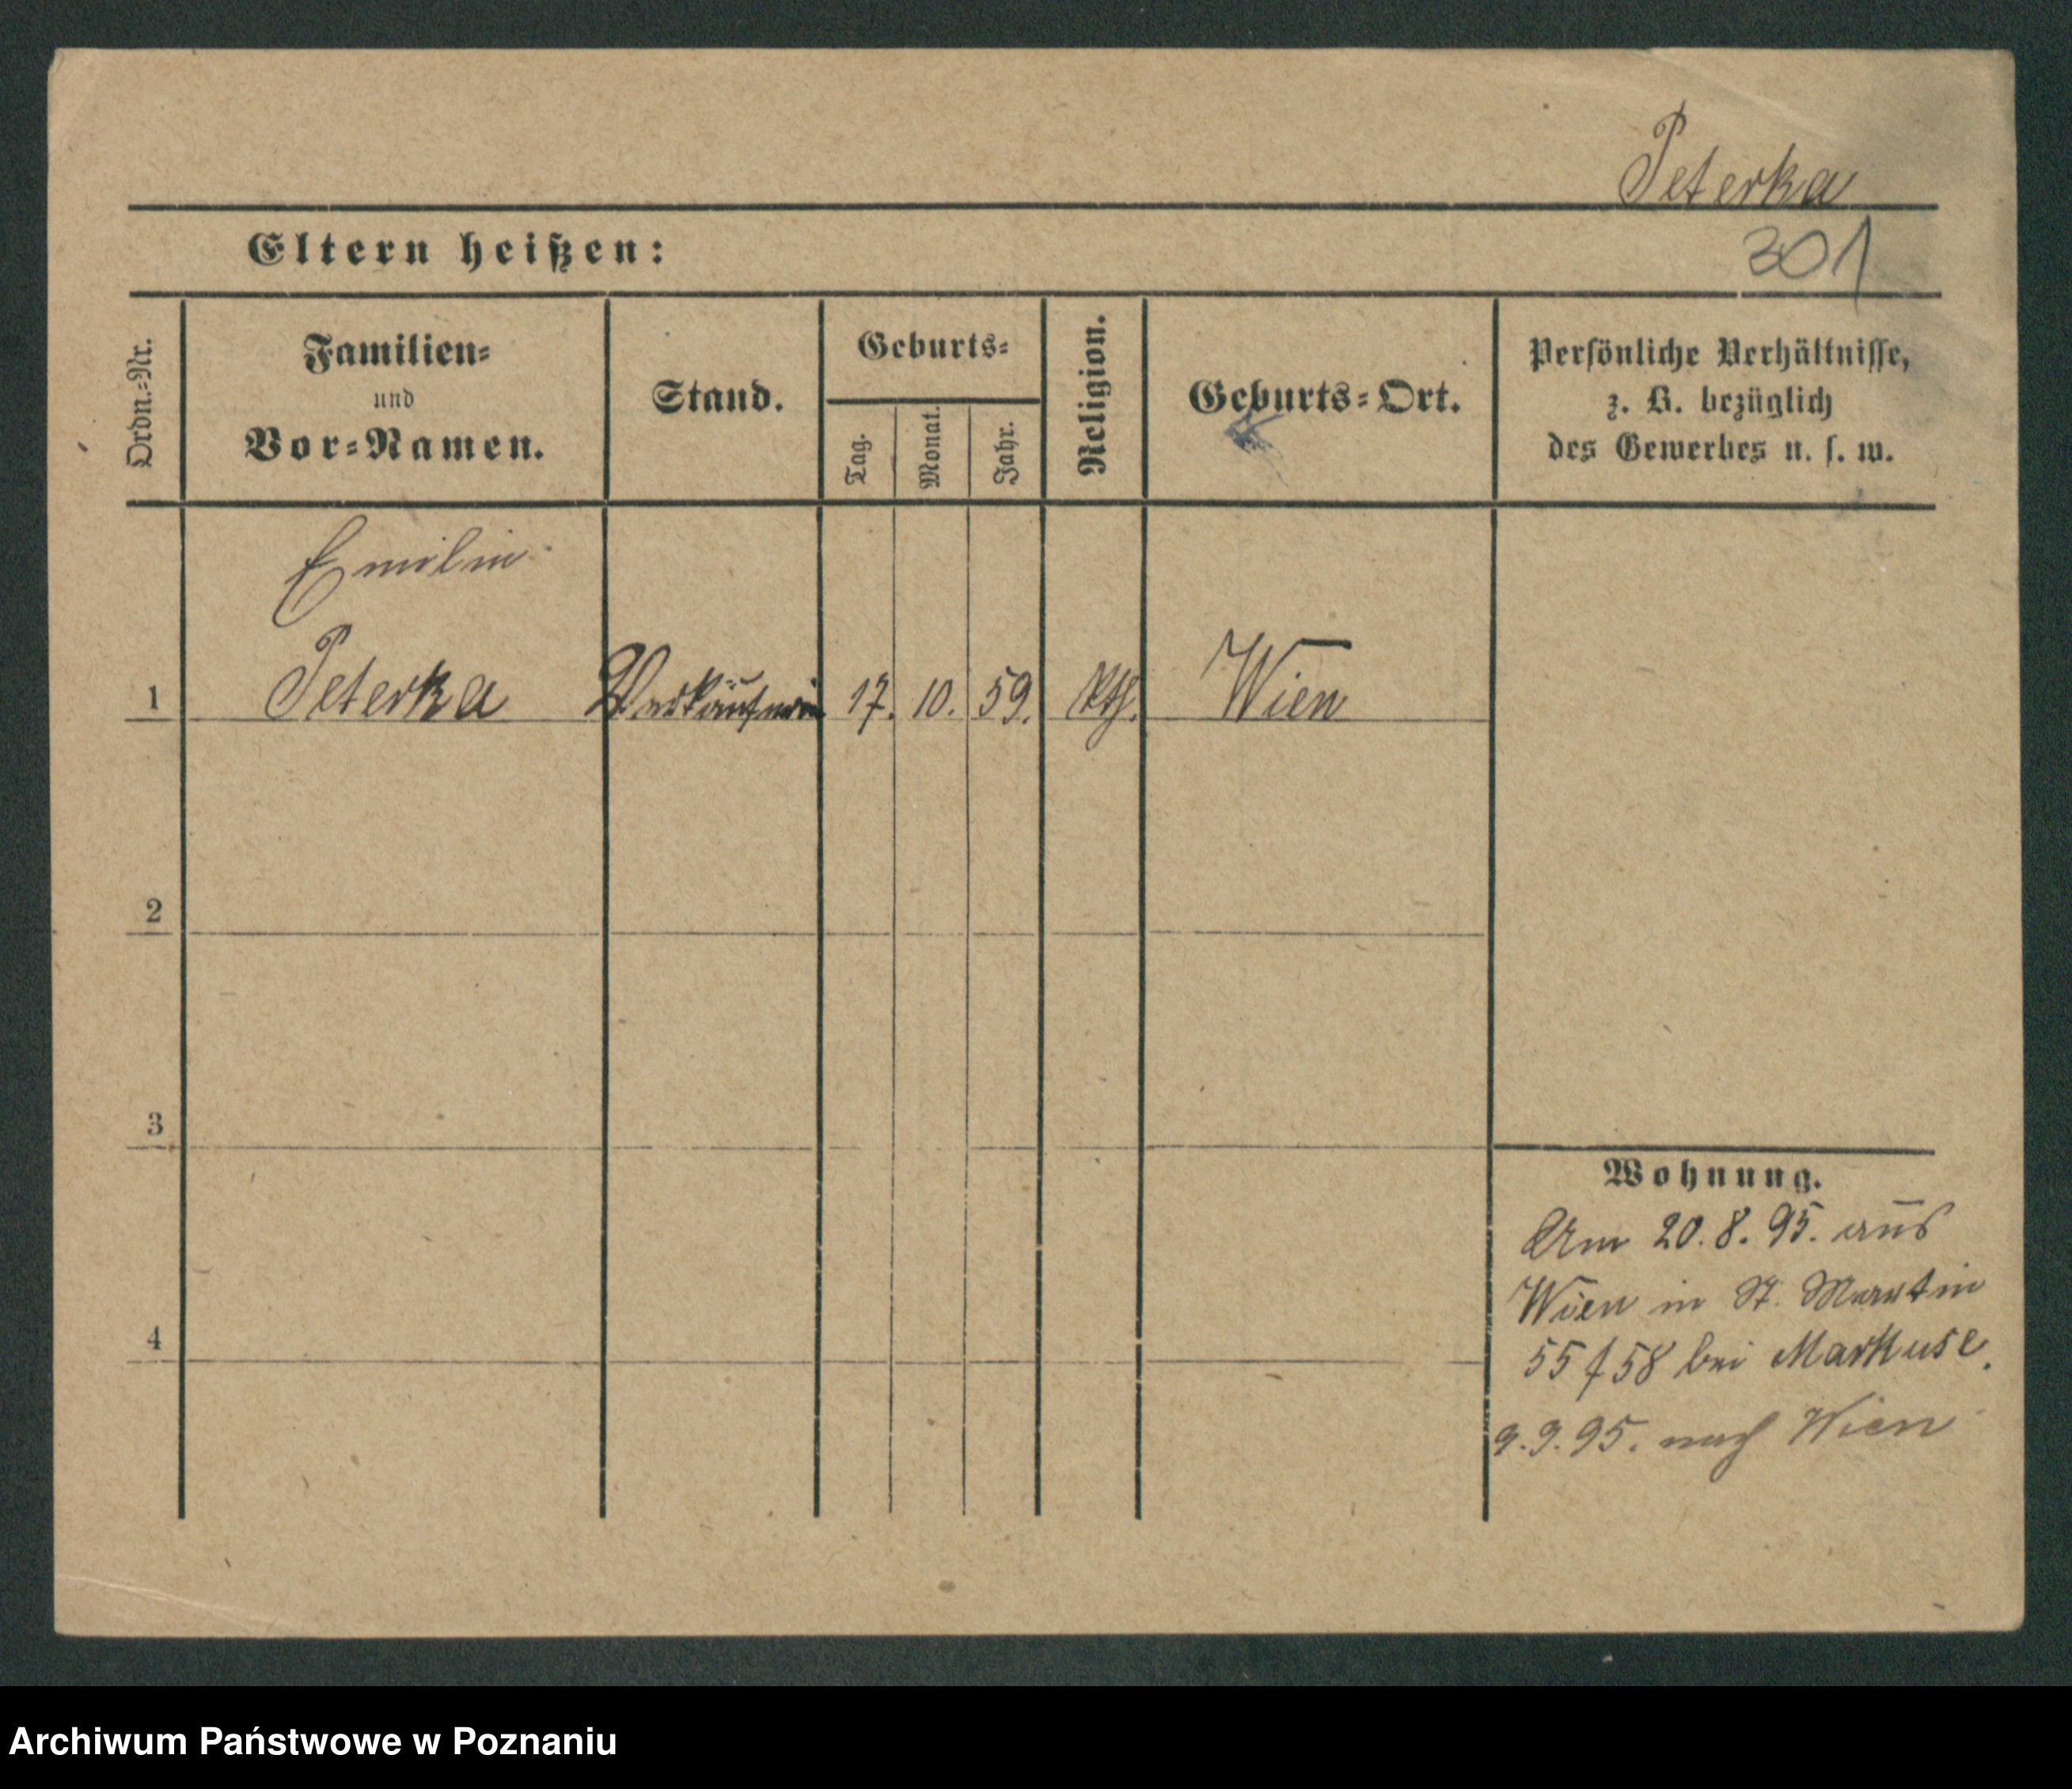 Peterka
Eltern heißen:
301
Ordn.=Nr.
Familien=
und
Vor=Namen.
Stand.
Geburts=
Tag.
Monat.
Jahr.
Religion.
Geburts=Ort.
Persönliche Verhältnisse,
z. B. bezüglich
des Gewerbes u. s. w.
Emilie
1 Peterka Verkäuferin 17. 10. 59. Kth. Wien
2
3
4
Wohnung.
Am 20.8.95. aus
Wien in St. Martin
55/58 bei Markuse.
9.9.95. nach Wien
Archiwum Państwowe w Poznaniu